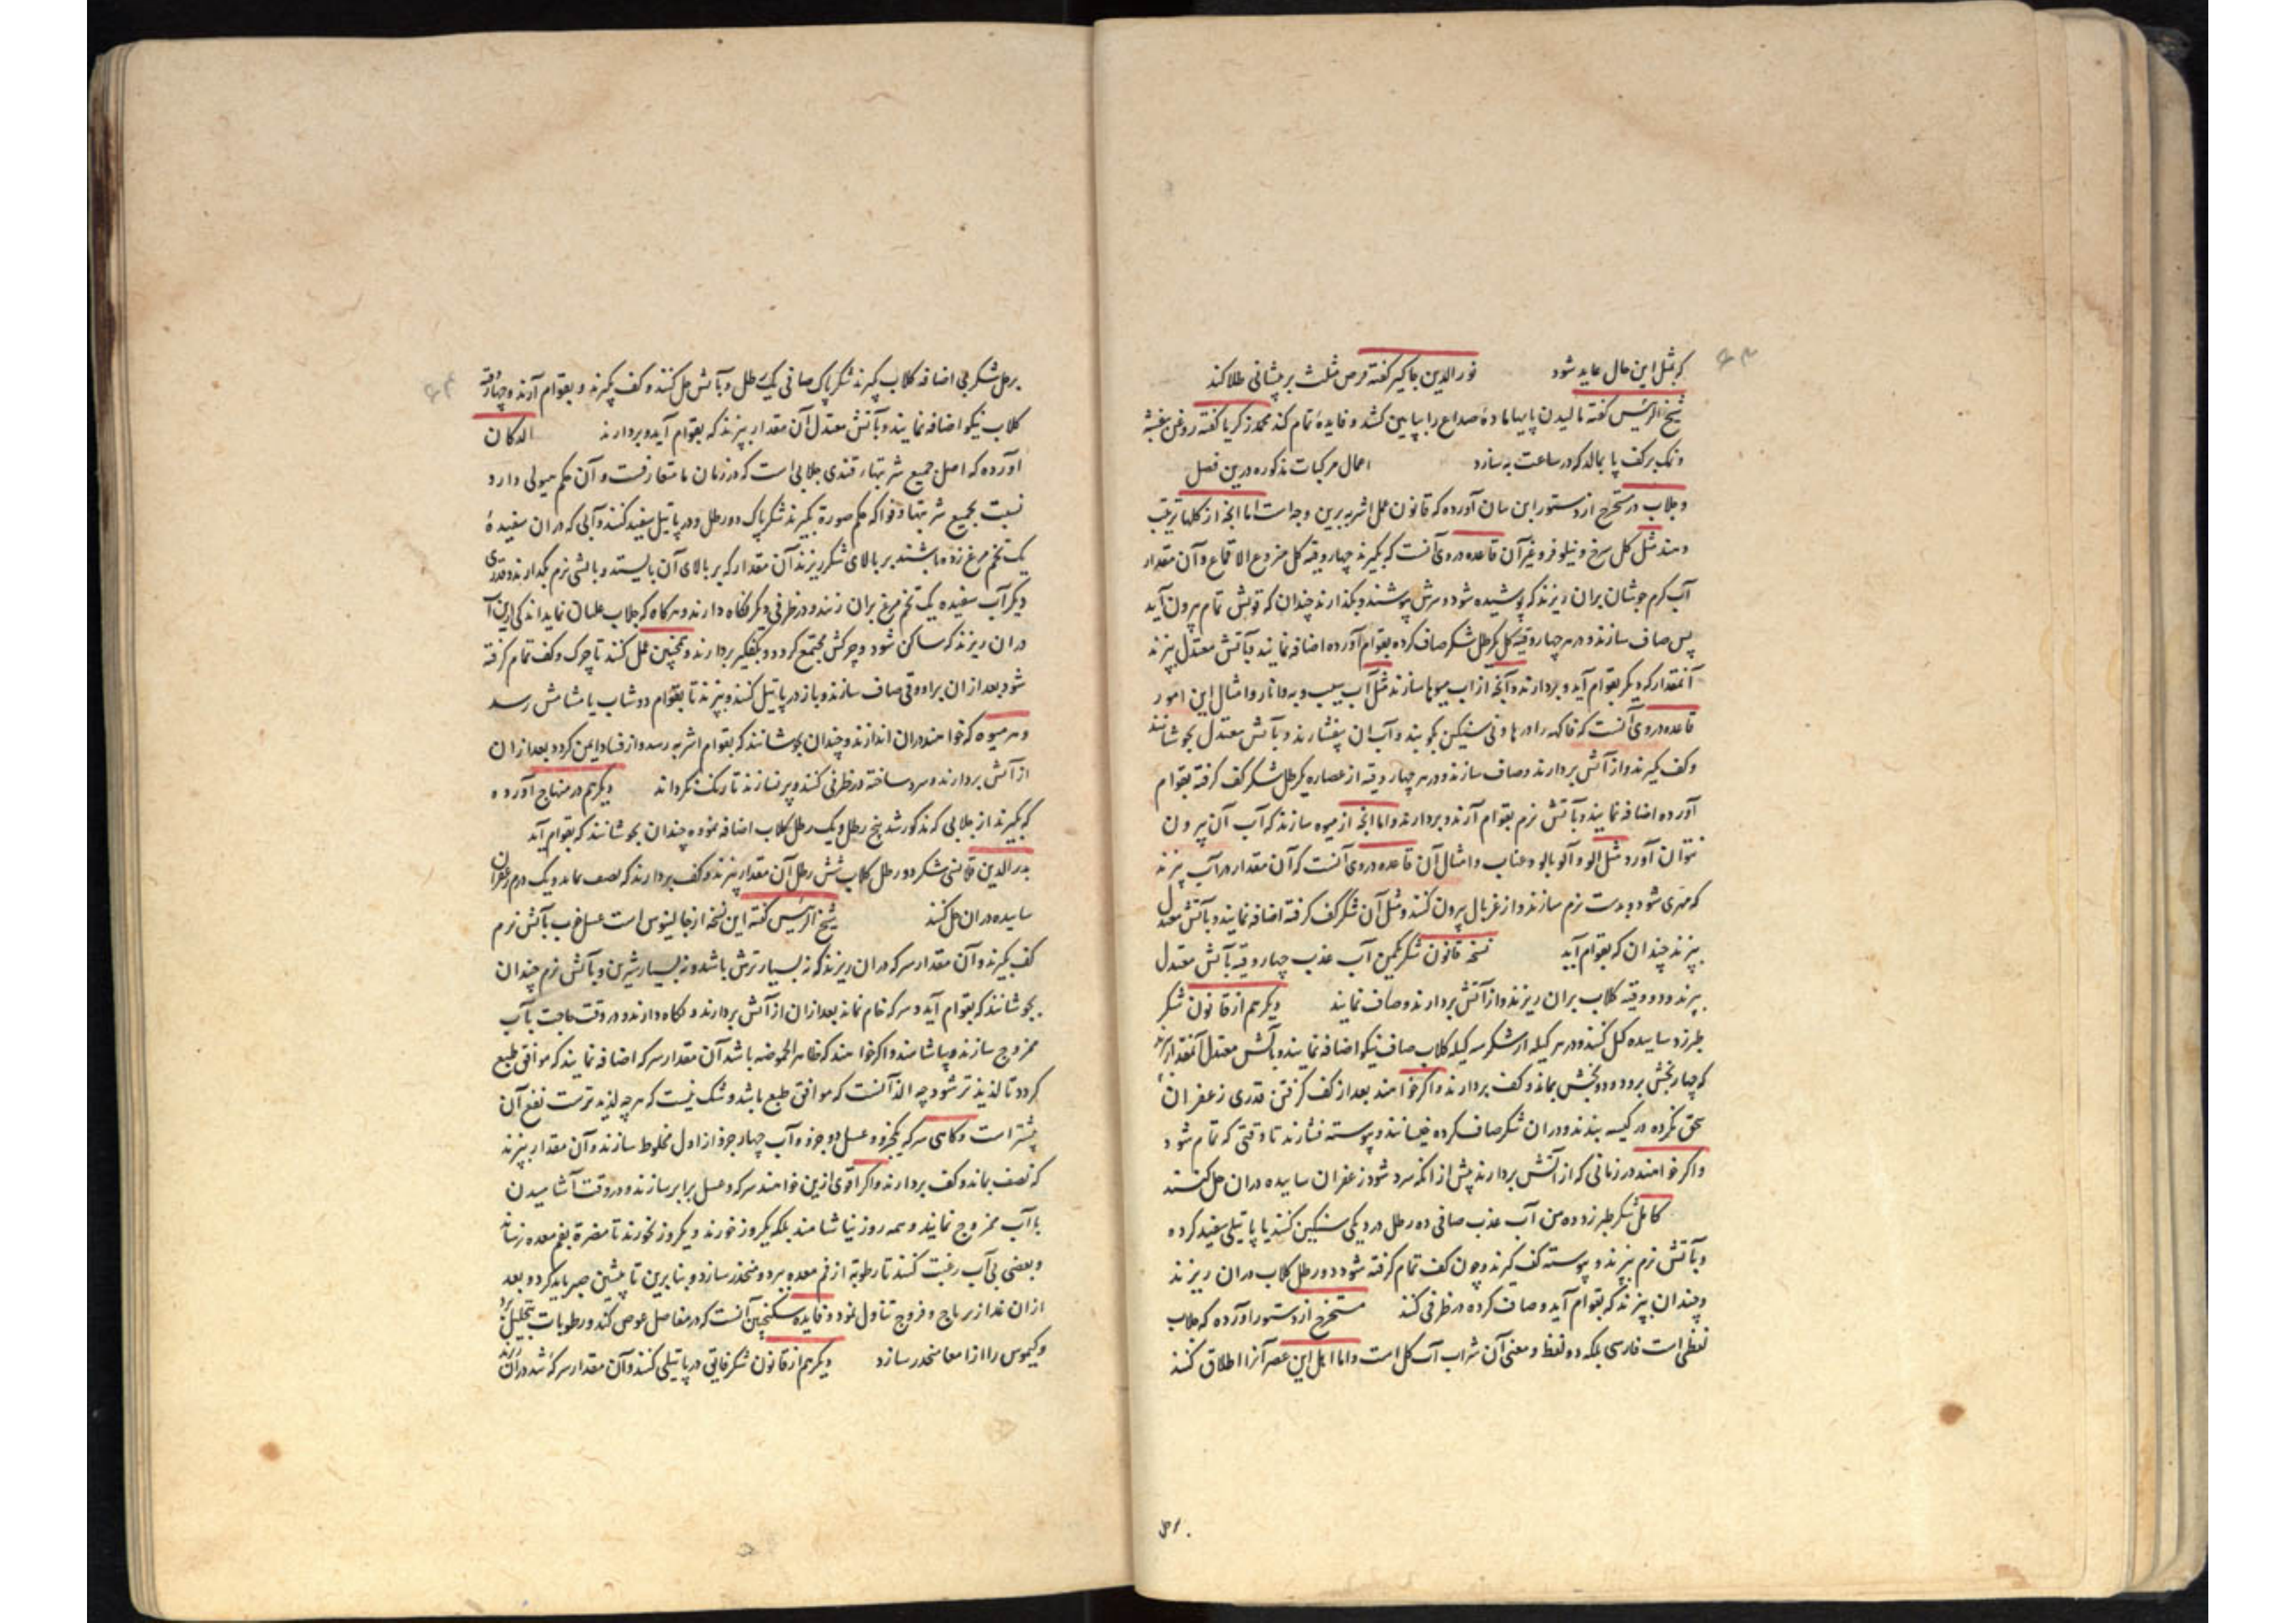 که بمثل این حال عاید شود نور الدین جهانگیر گفته قرص مثلث بر پیشانی طلا کند
شیخ الرئیس گفته مالیدن پایها ماده صداع را بپایین کشد و فایده تمام کند محمد زکریا گفته روغن بنفشه
و نمک بر کف پا بمالد که در ساعت به سازد اعمال مرکبات مذکوره درین فصل
و جلاب در مستخرج از دستور ابن بیان آورده که قانون عمل اشربه برین وجه است اما آنچه از گلها ترتیب
دهند مثل گل سرخ و نیلوفر و غیر آن قاعده در وی آنست که بگیرند چهار وقیه گل منزوع الاقماع و آن مقدار
آب گرم جوشان بران ریزند که پوشیده شود و سرش بپوشند و بگذارند چندان که قوتش تمام بیرون آید
پس صاف سازند و در هر چهار وقیه گل یکرطل شکر صاف کرده بقوام آورده اضافه نمایند و بآتش معتدل بپزند
آنمقدار که دیگر بقوام آید و بردارند و آنچه از آب میوها سازند مثل آب سیب و به و انار و امثال این امور
قاعده در وی آنست که فاکهه را در هاونی سنگین بکوبند و آب ان بیفشارند و بآتش معتدل بجوشانند
و کف گیرند و از آتش بردارند و صاف سازند و در هر چهار وقیه از عصاره یکرطل شکر کف گرفته بقوام
آورده اضافه نمایند و بآتش نرم بقوام آرند و بردارند و اما آنچه از میوه سازند که آب آن بیرون
نتوان آورد مثل الو و آلو بالو و عناب و امثال آن قاعده در وی آنست که آن مقدار در آب پزند
که مهری شود و بدست نرم سازند و از غربال بیرون کنند و مثل آن شکر کف گرفته اضافه نمایند و بآتش معتدل
بپزند چندان که بقوام آید نسخه قانون شکر یکمن آب عذب چهار وقیه بآتش معتدل
بپزند و دو وقیه گلاب بران ریزند و از آتش بردارند و صاف نمایند دیگر هم از قانون شکر
طبرزد ساییده کیل کنند و در هر کیله از شکر سه کیله گلاب صاف نیکو اضافه نمایند و بآتش معتدل آنقدر پزند
که چهار بخش برود و دو بخش بماند و کف بردارند و اگر خواهند بعد از کف گرفتن قدری زعفران
سحق نکرده در کیسه بندند و در ان شکر صاف کرده خیسانند و پیوسته فشارند تا وقتی که تمام شود
و اگر خواهند در زمانی که از آتش بردارند پیش از انکه سرد شود زعفران ساییده در ان حل کنند
کامل شکر طبرزد ده من آب عذب صافی ده رطل در دیگی سنگین کنند یا پاتیلی سفید کرده
و بآتش نرم بپزند و پیوسته کف گیرند و چون کف تمام گرفته شود دو رطل گلاب در ان ریزند
و چندان بپزند که بقوام آید و صاف کرده در ظرفی کنند مستخرج از دستور آورده که جلاب
لفظی است فارسی بلکه دو لفظ و معنی آن شراب آب گل است و اما اهل این عصر آنرا اطلاق کنند
بر حل شکر بی اضافه گلاب بگیرند شکر پاک صافی یک رطل و بآتش حل کنند و کف بگیرند و بقوام آرند و چهار وقیه
گلاب نیکو اضافه نمایند و بآتش معتدل آن مقدار بپزند که بقوام آید و بردارند الدکان
آورده که اصل جمیع شربتهاء قندی جلابی است که در زمان ما متعارفست و آن حکم هیولی دارد
نسبت بجمیع شربتها و فواکه حکم صورة بگیرند شکر پاک دو رطل و در پاتیل سفید کنند و آبی که در ان سفیده
یک تخم مرغ زده باشند بر بالای شکر ریزند آن مقدار که بر بالای آن بایستد و بآتشی نرم بگدازند و قدری
دیگر آب سفیده یک تخم مرغ بران زنند و در ظرفی دیگر نگاه دارند و هرگاه که جلاب غلیان نماید اندکی ازین آب
در ان ریزند که ساکن شود و چرکش مجتمع گردد و بکفگیر بردارند و همچنین عمل کنند تا چرک و کف تمام گرفته
شود بعد از ان براووقی صاف سازند و باز در پاتیل کنند و بپزند تا بقوام دوشاب یا مشامش رسد
و هر میوه که خواهند در ان اندازند و چندان بجوشانند که بقوام اشربه رسد و از فساد ایمن گردد بعد از ان
از آتش بردارند و سرد ساخته در ظرفی کنند و پر نسازند تا رنگ نگرداند دیگر هم در منهاج آورده
که بگیرند از جلابی که مذکور شد پنج رطل و یک رطل گلاب اضافه نموده چندان بجوشانند که بقوام آید
بدر الدین قلانسی شکر دو رطل گلاب شش رطل آن مقدار بپزند و کف بردارند که نصف بماند و یک درم زعفران
ساییده در ان حل کنند شیخ الرئیس گفته این نسخه از جالینوس است عسل خوب بآتش نرم
کف بگیرند و آن مقدار سرکه در ان ریزند که نه بسیار ترش باشد و نه بسیار شیرین و بآتش نرم چندان
بجوشانند که بقوام آید و سرکه خام نماند بعد از ان از آتش بردارند و نگاه دارند و در وقت حاجت بآب
ممزوج سازند و بیاشامند و اگر خواهند که ظاهر الحموضه باشد آن مقدار سرکه اضافه نمایند که موافق طبع
گردد تا لذیذتر شود چه الذ آنست که موافق طبع باشد و شک نیست که هر چه لذیذ ترست نفع آن
بیشتر است و گاهی سرکه یکجزو و عسل دو جزو و آب چهار جزو از اول مخلوط سازند و آن مقدار بپزند
که نصف بماند و کف بردارند و اگر اقوی ازین خواهند سرکه و عسل برابر سازند و در وقت آشامیدن
بآب ممزوج نمایند و همه روز نیاشامند بلکه یکروز خورند و یکروز نخورند تا مضرة بفم معده نرساند
و بعضی بی آب رغبت کنند تا رطوبة از فم معده ببرد و منحدر سازد و بنابرین تا پیشین صبر باید کرد و بعد
ازان غذا زیرباج و فروج تناول نمود و فایده سکنجبین آنست که در مفاصل غوص کند و رطوبات بتحلیل برد
و کیموس را از امعا منحدر سازد دیگر هم از قانون شکر فایق در پاتیلی کنند و آن مقدار سرکه تند در ان ریزند